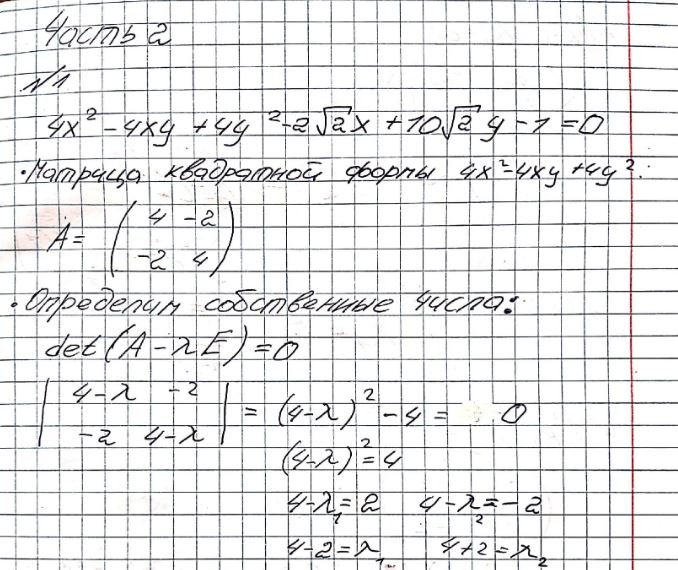 Часть 2
№1
4x² - 4xy + 4y² - 2√2x + 10√2 y - 1 = 0
·Матрица квадратной формы 4x²-4xy+4y².
A = ( 4 -2
-2 4 )
·Определим собственные числа:
det(A - λE) = 0
| 4-λ -2
-2 4-λ | = (4-λ)² - 4 = 0
(4-λ)² = 4
4-λ₁ = 2 4-λ₂ = -2
4-2 = λ₁ 4+2 = λ₂